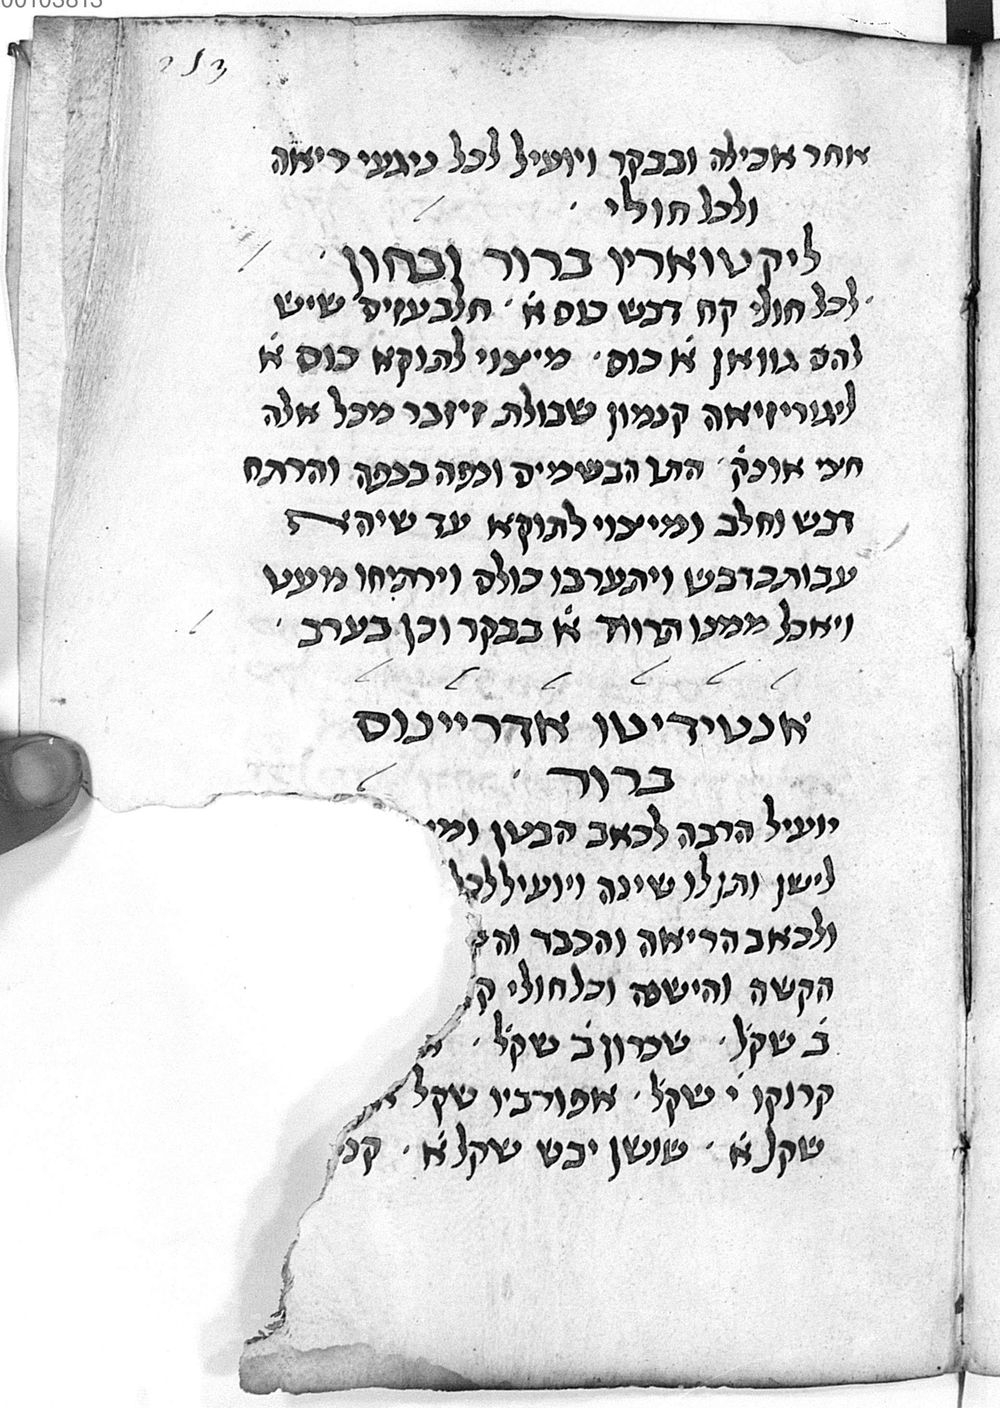 00103813
אוחר אכילה ובבקר ויועיל לכל ניגעי ריאה
ולכל חולי
ליקטוארין ברור ובחון
לכל חולי קח דבש כוס א׳ חלב עזים שיש
להם גוואן א׳ כוס מיצוי לתוקא כוס א׳
ליגוריזיאה קנמון שבולת זיזבר מכל אלה
חצי אונק׳ התו הבשמים ונפה בנפה והרתח
דבש וחלב ומיצוי לתוקא עד שיהא
עבות כדבש ויתערבו כולם וירתיחו מעט
ויאכל ממנו הרווד א׳ בבקר וכן בערב
אנטידיטו אדריינוס
ברור
יועיל הרבה לכאב הבטן ומי
לישן ותן לו שינה ויועיל לכל
ולכאב הריאה והכבד וה
הקשה והישנה וכל חולי ק
ב׳ שקל׳ שכרון ב׳ שקל׳ א
קרוקו י׳ שקל׳ אפורביו שקל א
שקל א׳ שושן יבש שקל א׳ קנ